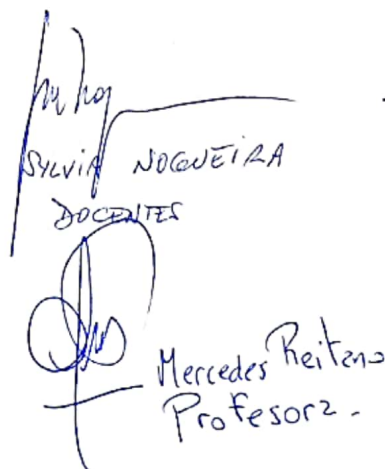 SYLVIA NOGUEIRA
DOCENTES
Mercedes Reitano
Profesora.